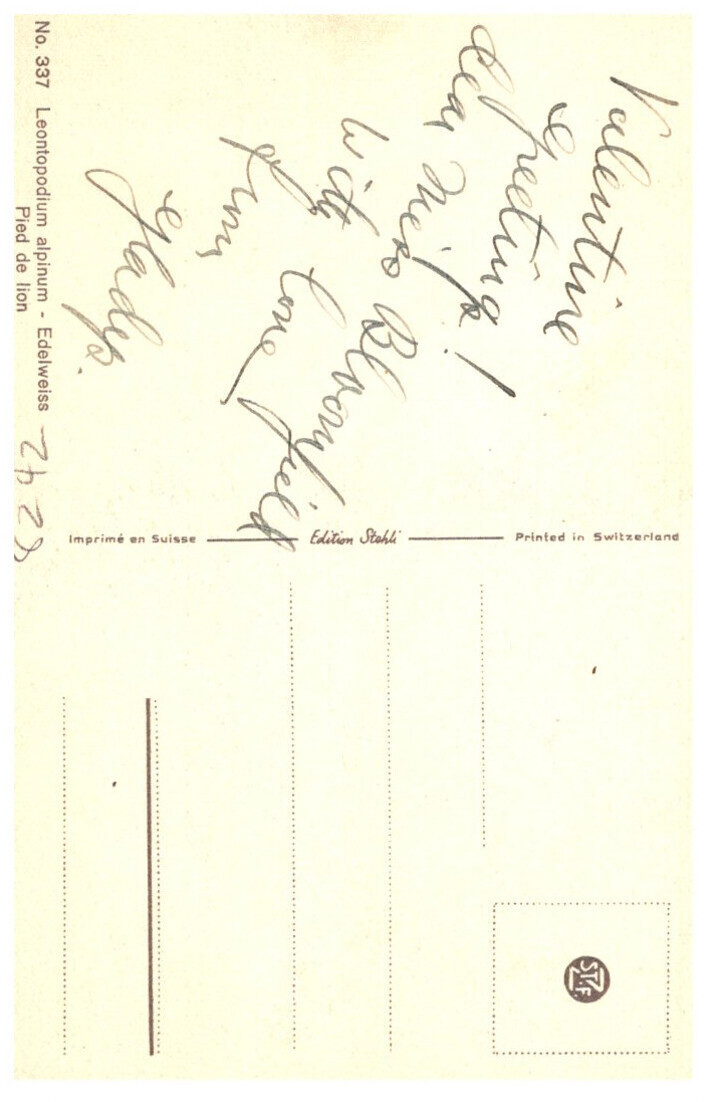 Valentine
Greetings!
Dear Miss Bloomfield
With love
from
Gladys.
No. 337 Leontopodium alpinum - Edelweiss
Pied de lion
Imprimé en Suisse
Edition Stehli
Printed in Switzerland